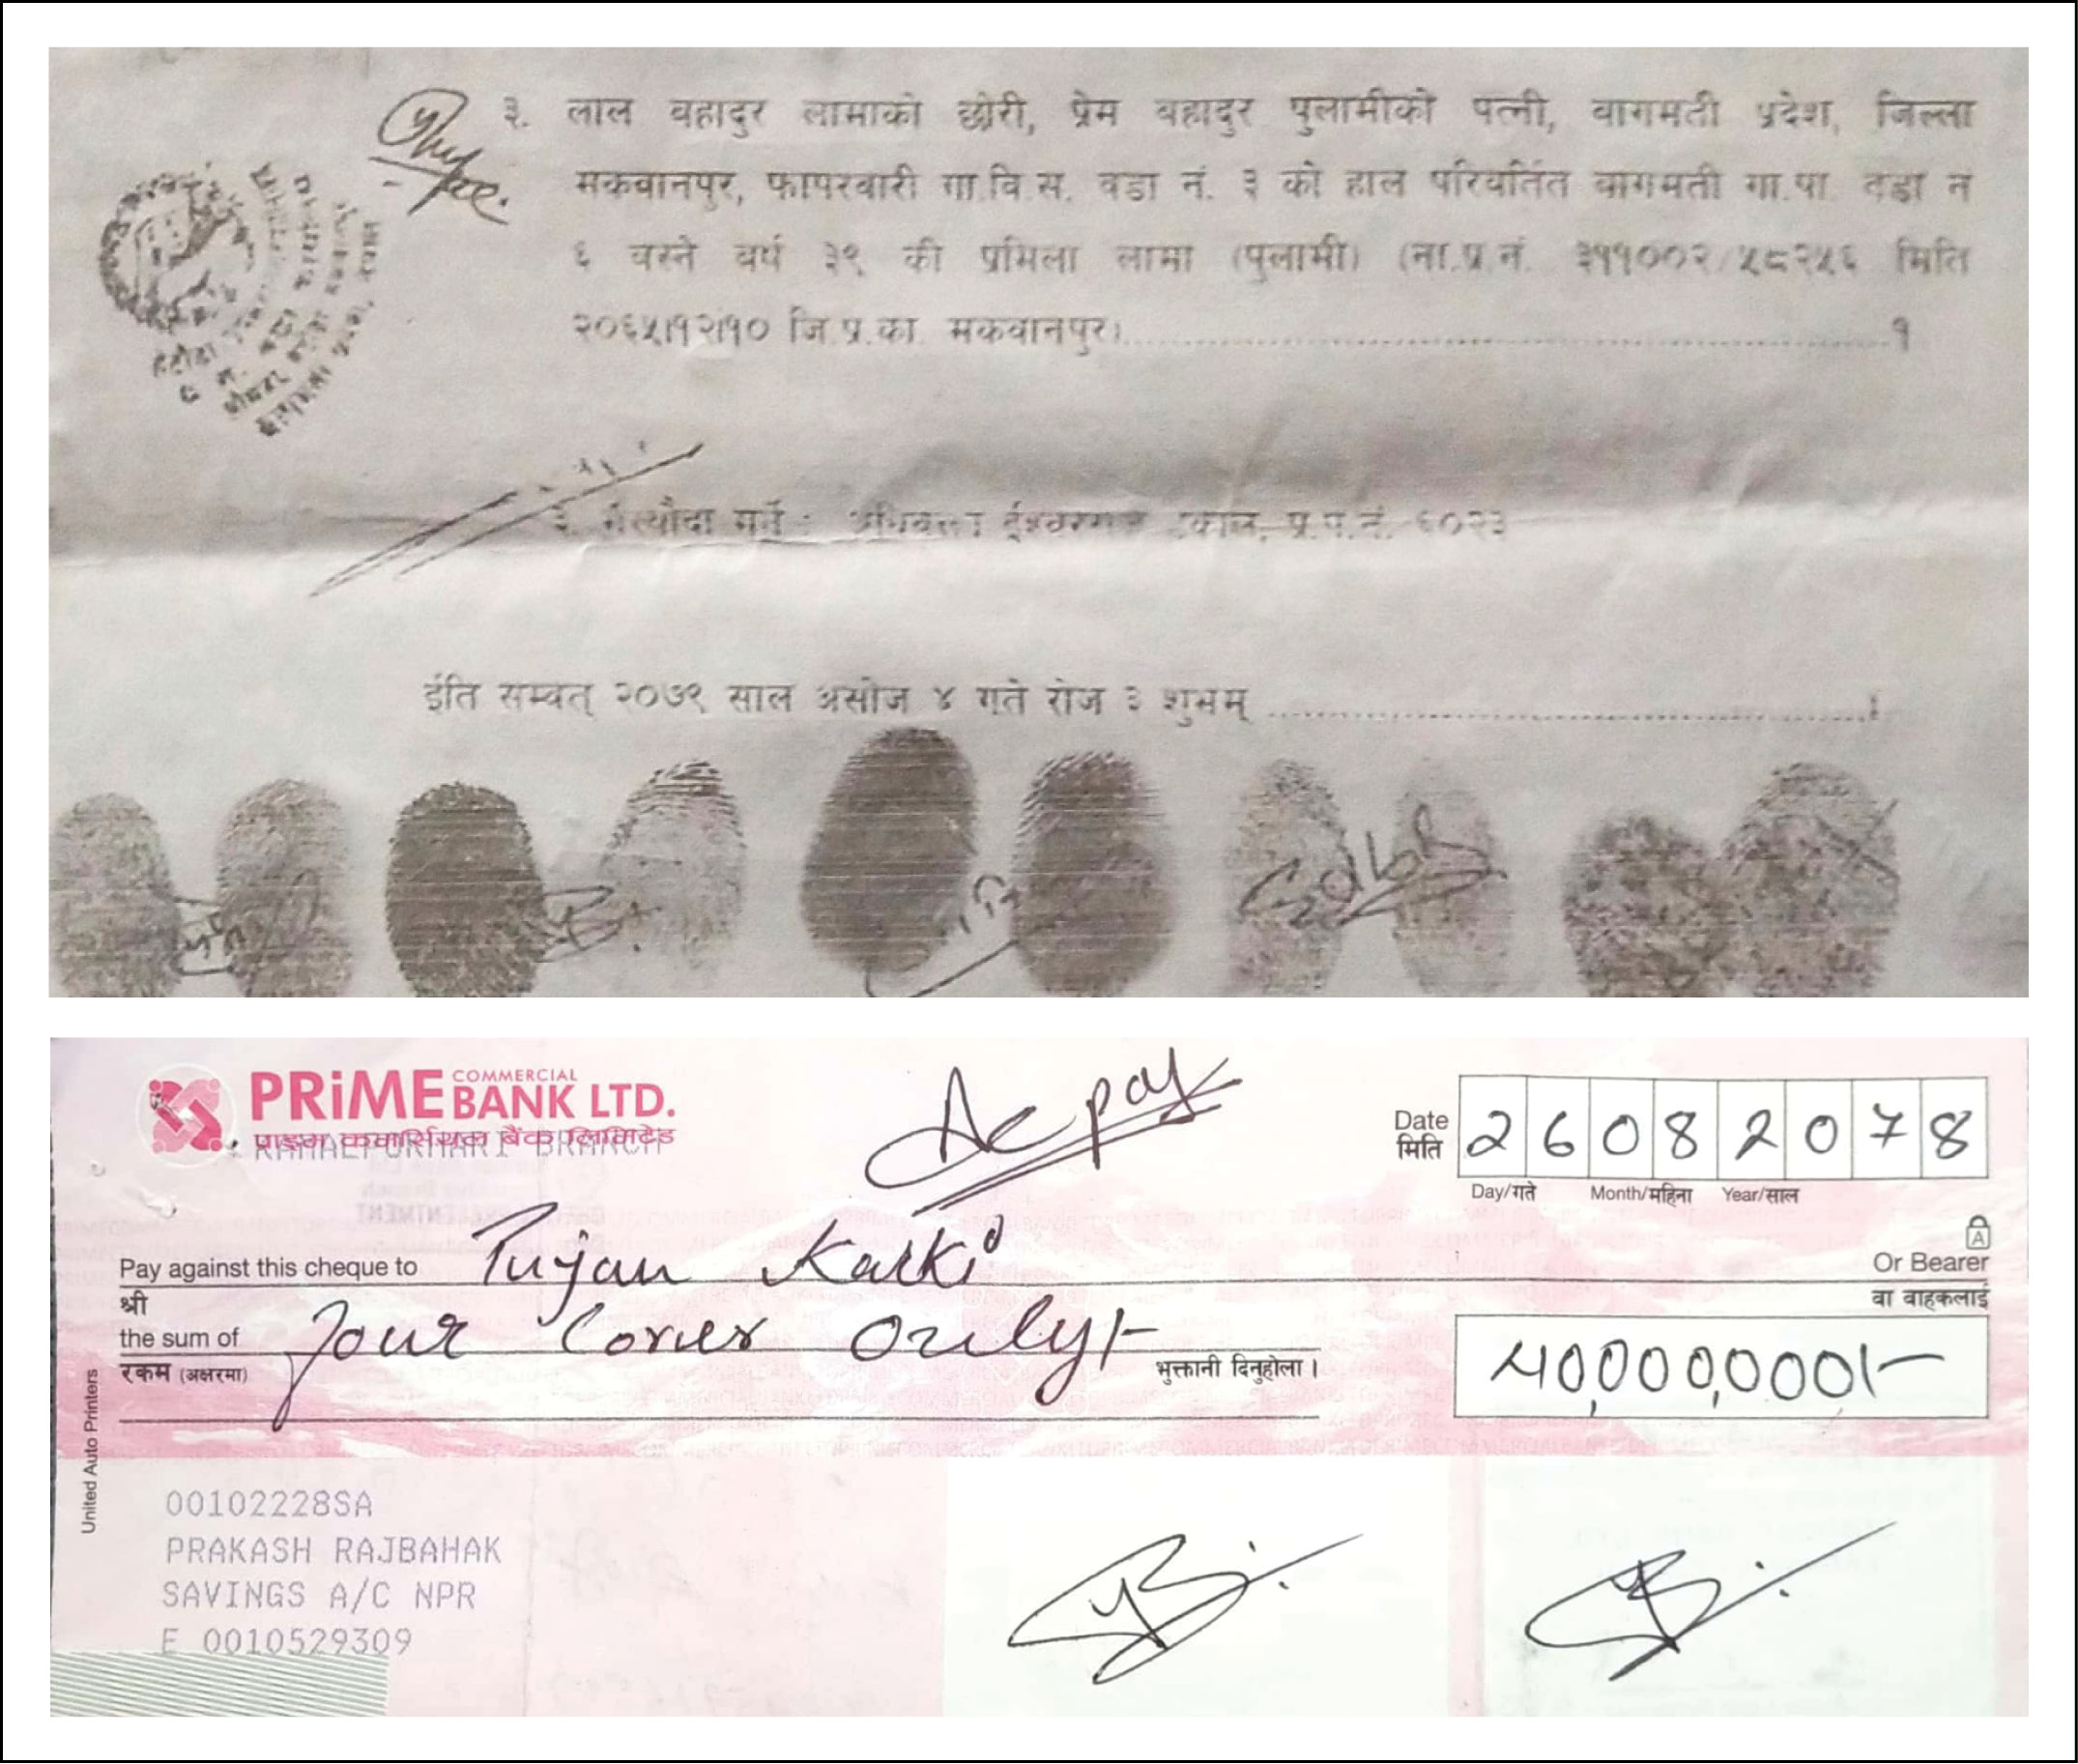 ३. लाल बहादुर लामाको छोरी, प्रेम बहादुर पुलामीको पत्नी, बागमती प्रदेश, जिल्ला
मकवानपुर, फापरबारी गा.वि.स. वडा नं. ३ को हाल परिवर्तित बागमती गा.पा. वडा न
६ बस्ने वर्ष ३९ की प्रमिला लामा (पुलामी) (ना.प्र.नं. ३११००२/५८२५६ मिति
२०६५।१२।१० जि.प्र.का. मकवानपुर)..........१
३. मस्यौदा गर्ने : अधिवक्ता ढकाल, प्र.प.नं. ६०२३
ईति सम्वत् २०७९ साल असोज ४ गते रोज ३ शुभम् ..........।
PRiME COMMERCIAL BANK LTD.
प्राइम कमर्सियल बैंक लिमिटेड
KAMALPOKHARI BRANCH
Ac pay
Date 26082078
मिति
Day/गते Month/महिना Year/साल
Pay against this cheque to Pujan Karki
Or Bearer
श्री
वा वाहकलाई
the sum of Four Corer Only/-
रकम (अक्षरमा) भुक्तानी दिनुहोला ।
40,000,000/-
United Auto Printers
00102228SA
PRAKASH RAJBAHAK
SAVINGS A/C NPR
E 0010529309